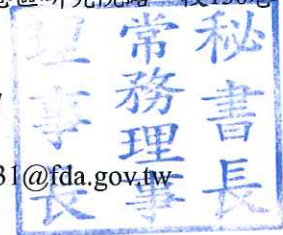 區研究院路一段130巷
秘書長
常務理事
理事長
31@fda.gov.tw